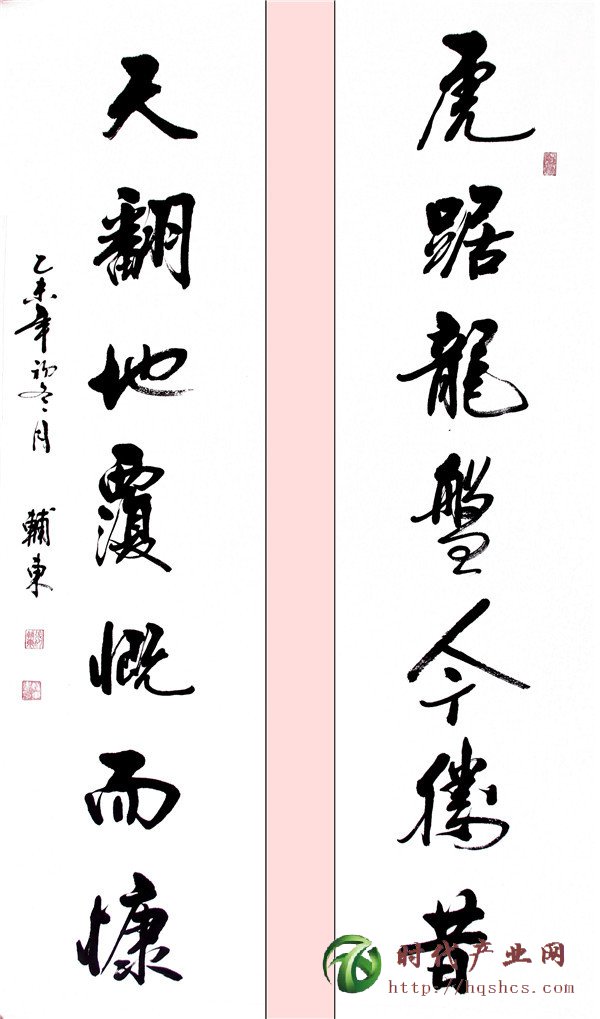 虎踞龍盤今勝昔
天翻地覆慨而慷
乙未年初冬月 輔東
时代产业网
http://hqshcs.com